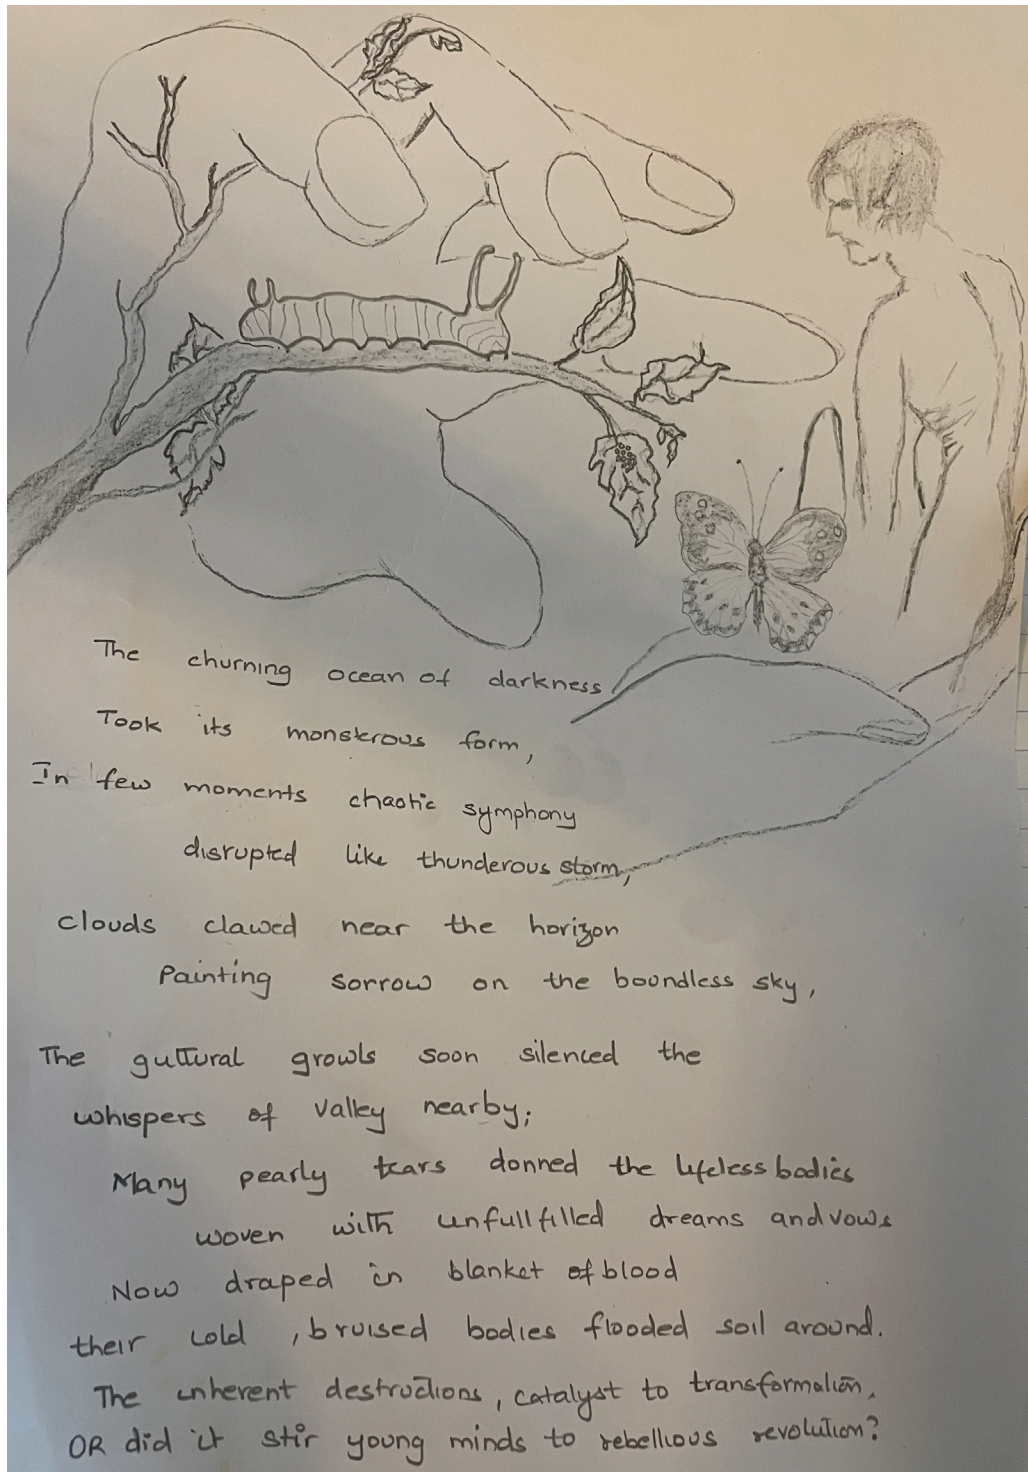 The churning ocean of darkness
Took its monstrous form,
In few moments chaotic symphony
disrupted like thunderous storm,
clouds clawed near the horizon
Painting sorrow on the boundless sky,
The guttural growls soon silenced the
whispers of valley nearby;
Many pearly tears donned the lifeless bodies
woven with unfullfilled dreams and vows
Now draped in blanket of blood
their cold , bruised bodies flooded soil around.
The inherent destructions, catalyst to transformation,
OR did it stir young minds to rebellious revolution?